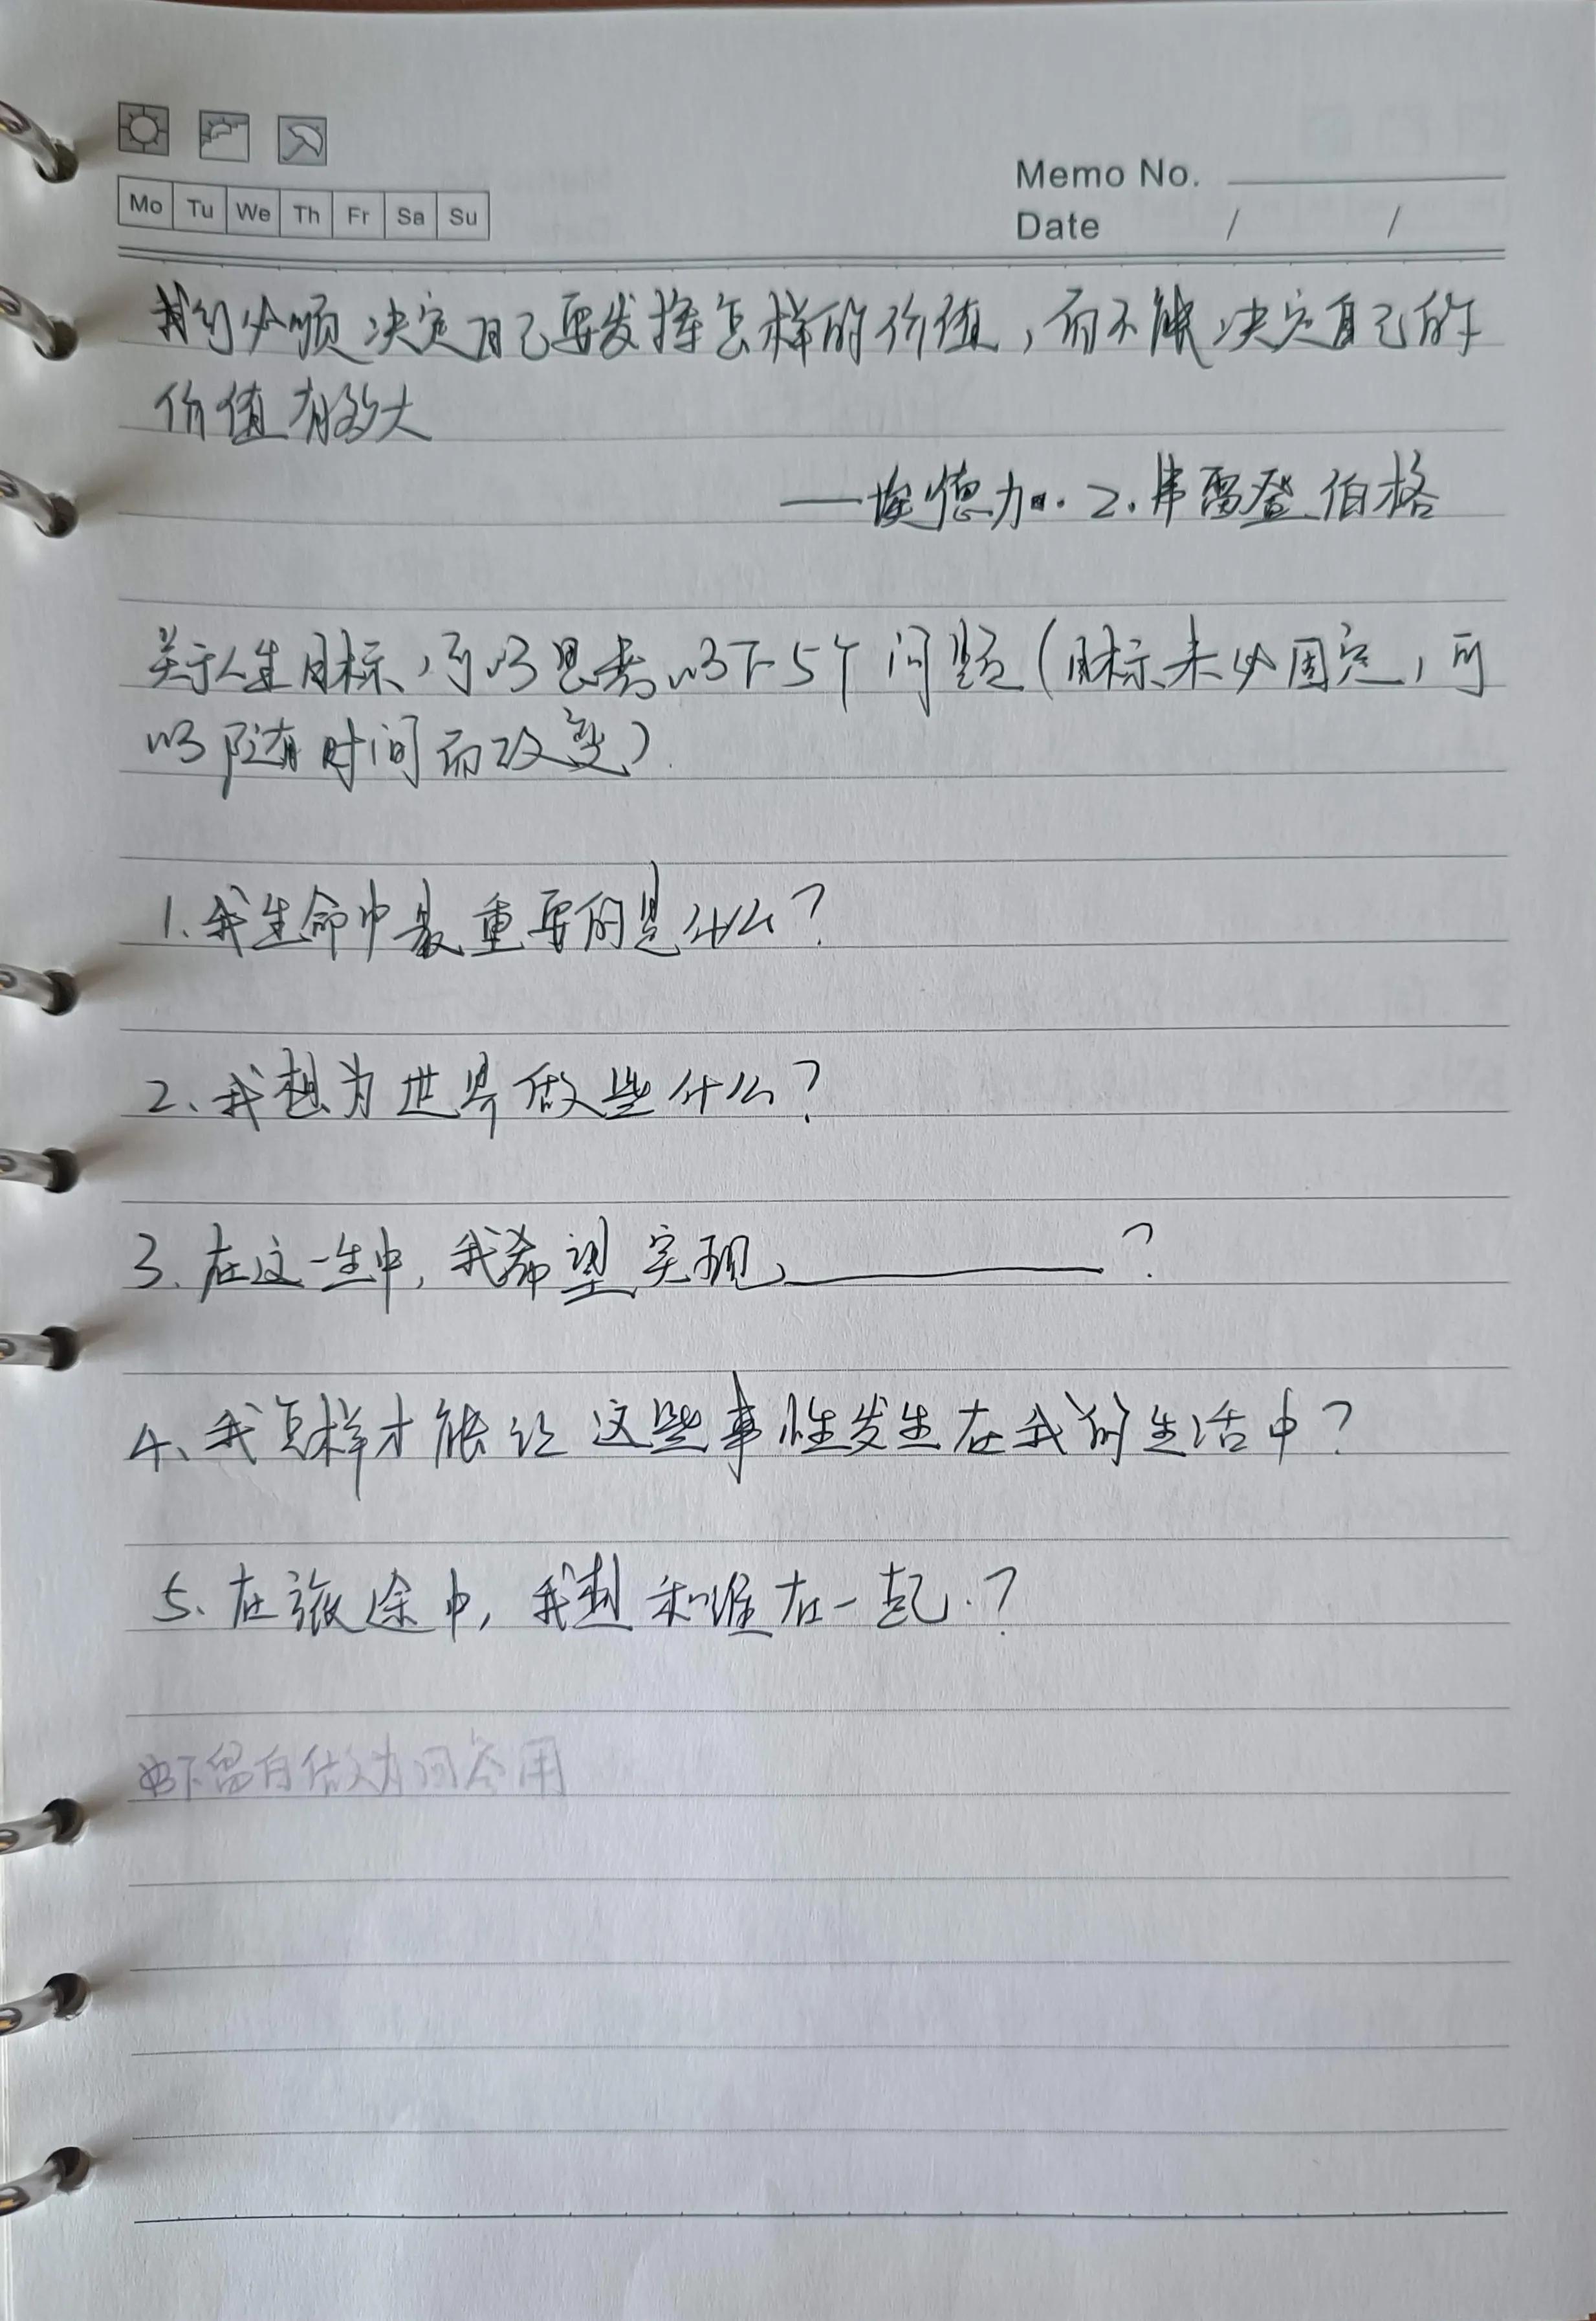 Memo No.
Mo Tu We Th Fr Sa Su
Date / /
我们必须决定自己要发挥怎样的价值，而不能决定自己的
价值有多大
——埃德加·Z.弗雷登伯格
关于人生目标，可以思考以下5个问题（目标未必固定，可
以随时间而改变）
1.我生命中最重要的是什么？
2、我想为世界做些什么？
3.在这一生中，我希望实现______？
4、我怎样才能让这些事性发生在我的生活中？
5.在旅途中，我想和谁在一起.？
以下留白做为回答用